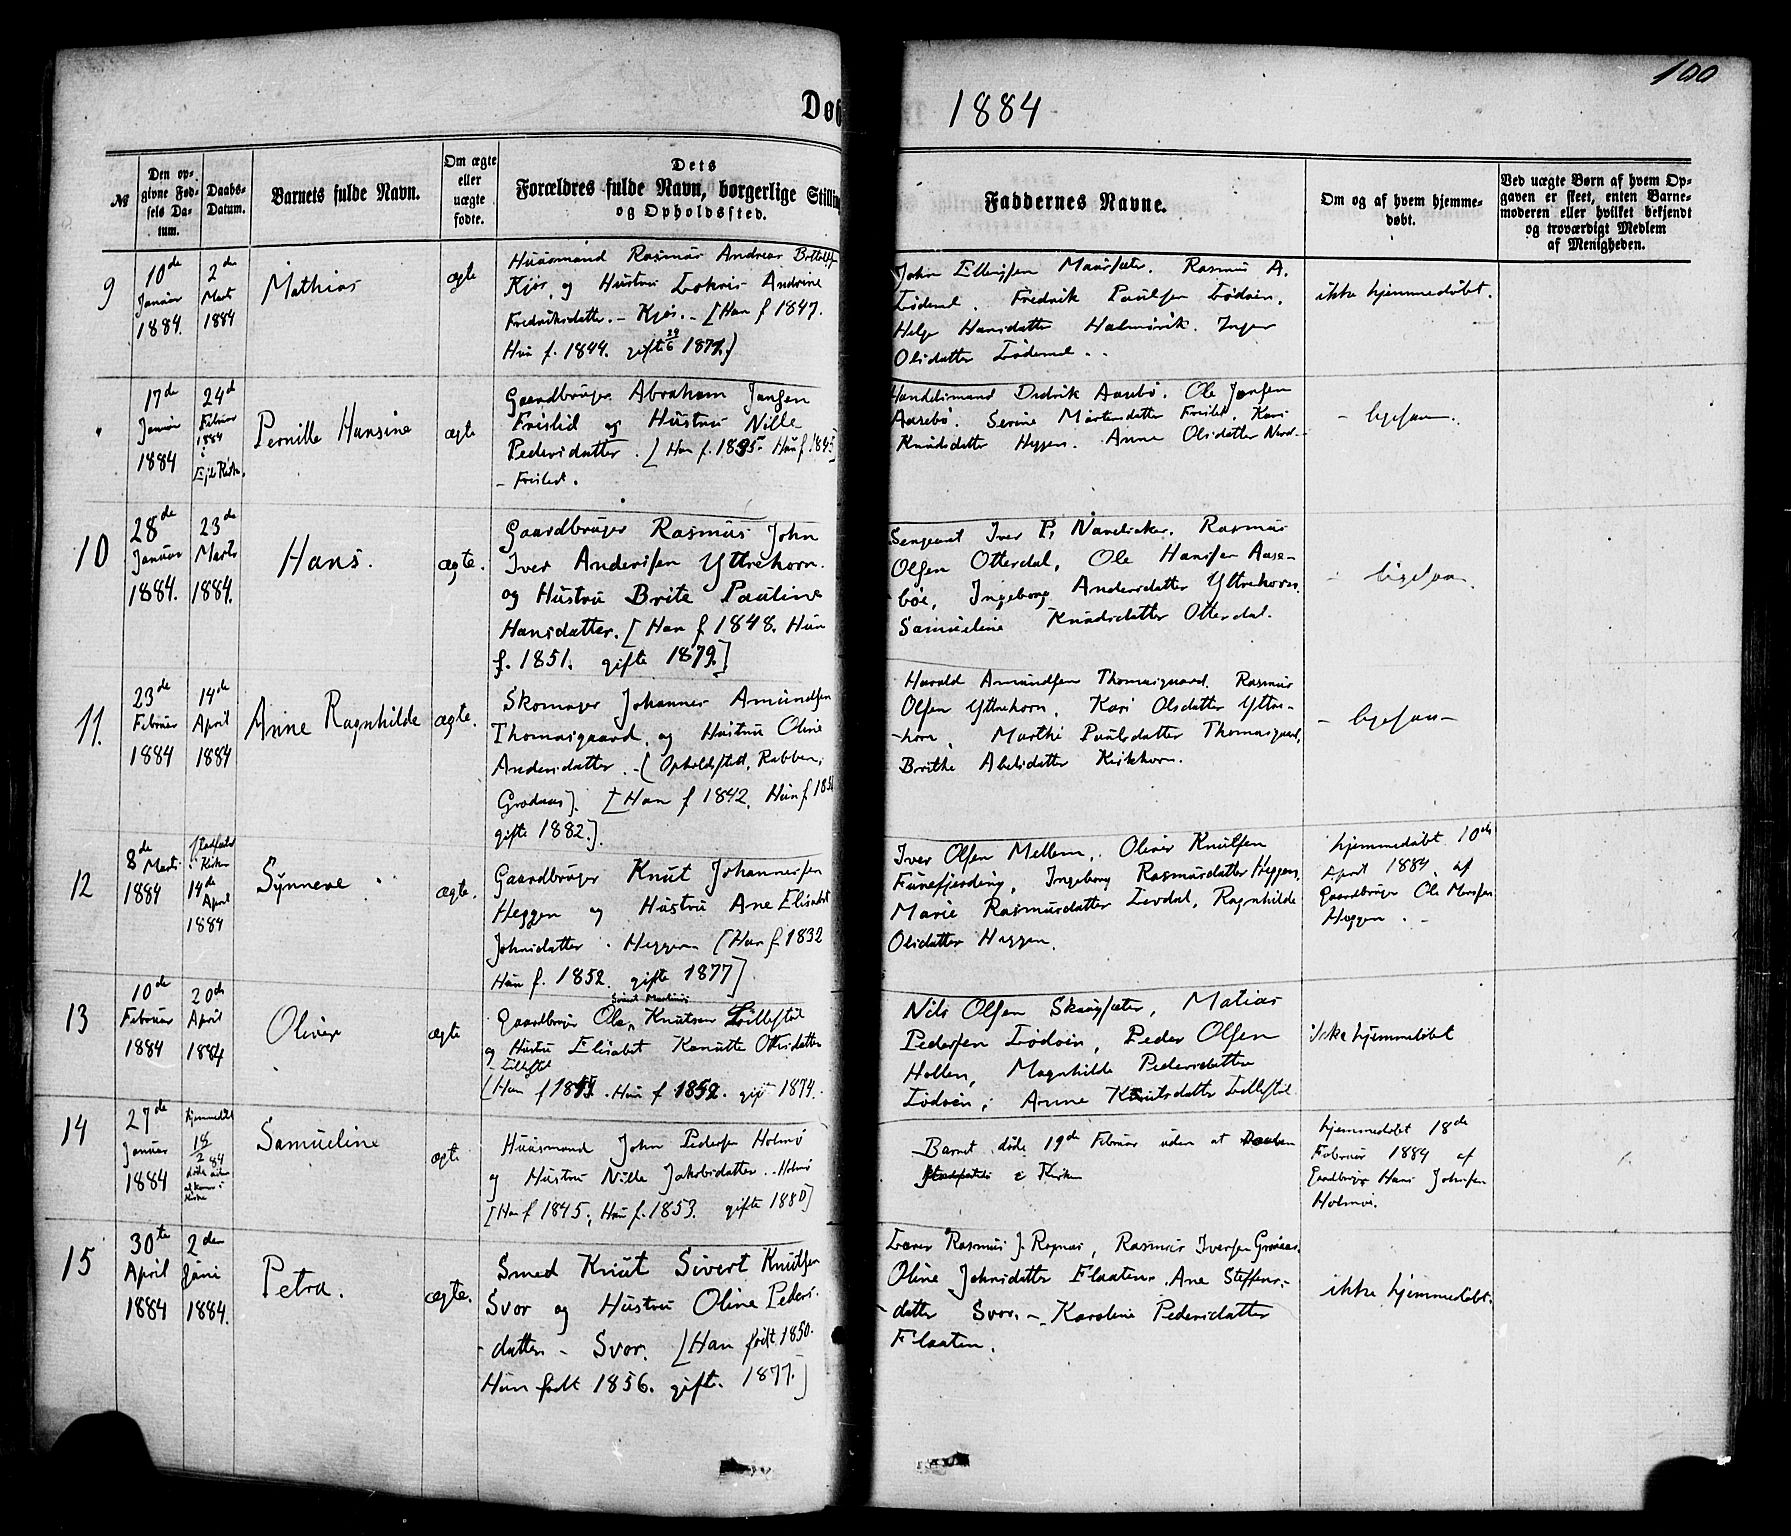 100
Døb
1884
№
Den op-
givne Fød-
sels Da-
tum.
Daabs-
Datum.
Barnets fulde Navn.
Om ægte
eller
uægte
fødte.
Dets
Forældres fulde Navn, borgerlige Stillin
og Opholdssted.
Faddernes Navne.
Om og af hvem hjemme-
døbt.
Ved uægte Børn af hvem Op-
gaven er skeet, enten Barne-
moderen eller hvilket bekjendt
og troværdigt Medlem
af Menigheden.
9
10de
Januar
1884.
2de
Mats
1884
Mathias
ægte
Huusmand Rasmus Andreas
Kjøs, og Hustru Lovise Andrine
Fredriksdatter. – Kjøs. – [Han f 1847.
Hun f. 1844. gifte 29/6 1871.]
John Ellingsen Maurseter. Rasmus A.
Lødemel. Fredrik Paulsen Lødøin.
Helge Hansdatter Holmøvik. Inger
Olsdatter Lødemel.
ikke hjemmedøbt.
17de
Januar
1884
24d
Februar
1884
i
Ejds Kirke.
Pernille Hansine
ægte
Gaardbruger Abraham Jansen
Frislid og Hustru Nille
Pedersdatter. [Han f. 1835. Hun f 1845]
– Frislid.
Handelsmand Didrik Aasebø. Ole Jansen
Aasebø. Serine Mortensdatter Frislid. Kari
Knudsdatter Heggen. Anne Olsdatter Nord-
– ligesaa.
10
28de
Januar
1884.
23de
Marts
1884.
Hans.
ægte.
Gaardbruger Rasmus John
Iver Andersen Yttrehorn.
og Hustru Brite Pauline
Hansdatter. [Han f 1848. Hun
f. 1851. gifte 1879.]
Sergeant Iver P. Navelsaker. Rasmus
Olsen Otterdal, Ole Hansen Aase-
bøe, Ingeborg Andersdatter Yttrehorn.
Samueline Knudsdatter Otterdal.
– ligesaa.
11.
23de
Februar
1884
14de
April
1884
Anne Ragnhilde
ægte.
Skomager Johannes Amundsen
Thomasgaard, og Hustru Oline
Andersdatter. – (Opholdssted, Rabben,
Grodaas). [Han f 1842. Hun f.
gifte 1882.]
Harald Amundsen Thomasgaard. Rasmus
Olsen Yttrehorn, Kari Olsdatter Yttre-
horn, Marthe Paulsdatter Thomasgaard,
Brithe Abelsdatter Kirkhorn.
– ligesaa –
12
8de
Marts
1884
stadfæstet
i Kirken
14de
April
1884
Synneve.
ægte.
Gaardbruger Knut Johannessen
Heggen og Hustru Ane Elisabet
Johnsdatter. Heggen [Han f. 1832
Hun f. 1852. gifte 1877]
Iver Olsen Mellem, Oliver Knutsen
Fanefjording, Ingeborg Rasmusdatter Heggen.
Marie Rasmusdatter Levdal, Ragnhilde
Olsdatter Heggen.
hjemmedøbt 10de
April 1884. af
Gaardbruger Ole Monsen
Heggen. –
13
10de
Februar
1884
20de
April
1884
Oliver
ægte
Sivert Martinus
Gaardbruger Ole Knutsen Lillestøl
og Hustru Elisabet Kanutte Ottesdatter
– Lillestøl
[Han f . Hun f 1852. gift 1874.
Nils Olsen Skaugseter, Matias
Pedersen Lødøin, Peder Olsen
Hollen, Magnhilde Pedersdatter
Lødøin, Anne Knutsdatter Lillestøl
ikke hjemmedøbt
14
27de
Januar
1884
hjemmedøbt
18/2 84
døde uden
at komme i
Kirke
Samueline
ægte
Huusmand John Pedersen Holmø
og Hustru Nille Jakobsdatter. Holmø
[Han f 1845, Hun f. 1853. gifte 1880]
Barnet døde 19de Februar uden at Daaben
stadfæstedes i Kirken
hjemmedøbt 18de
Februar 1884 af
Gaardbruger Hans Johnsen
Holmøi.
15
30te
April
1884
2den
Juni
1884.
Petra.
ægte.
Smed Knut Sivert Knutsen
Svor og Hustru Oline Peders-
datter – Svor. [Han født 1850.
Hun født 1856. gifte. 1877.]
Lærer Rasmus J. Rognes, Rasmus Iversen Grodaas.
Oline Johnsdatter Flaaten. Ane Steffens-
datter Svor. – Karoline Pedersdatter
Flaaten.
ikke hjemmedøbt.